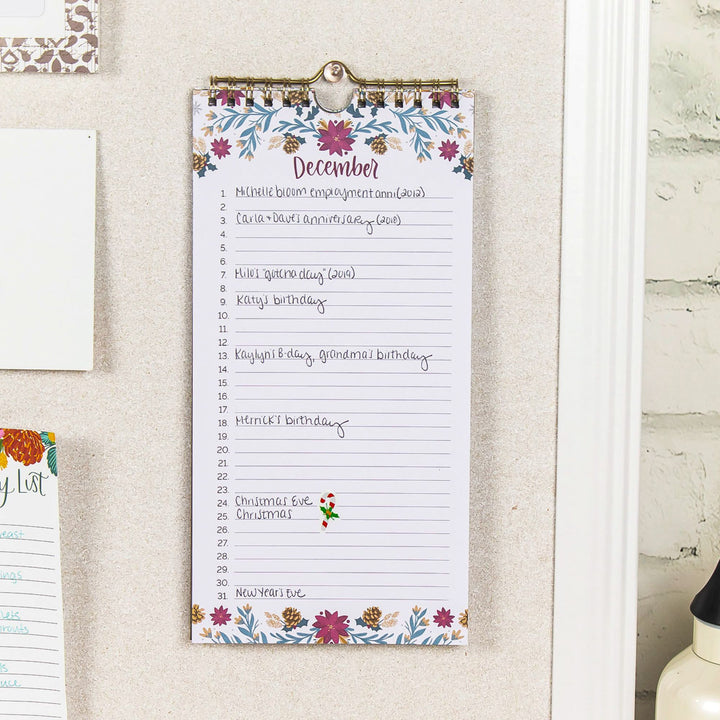 December
1. Michelle bloom employment anni (2012)
2.
3. Carla + Dave's anniversary (2018)
4.
5.
6.
7. Milo's "gotcha day" (2019)
8.
9. Katy's birthday
10.
11.
12.
13. Kaylyn's B-day, grandma's birthday
14.
15.
16.
17.
18. Merrick's birthday
19.
20.
21.
22.
23.
24. Christmas Eve
25. Christmas
26.
27.
28.
29.
30.
31. New Year's Eve
y List